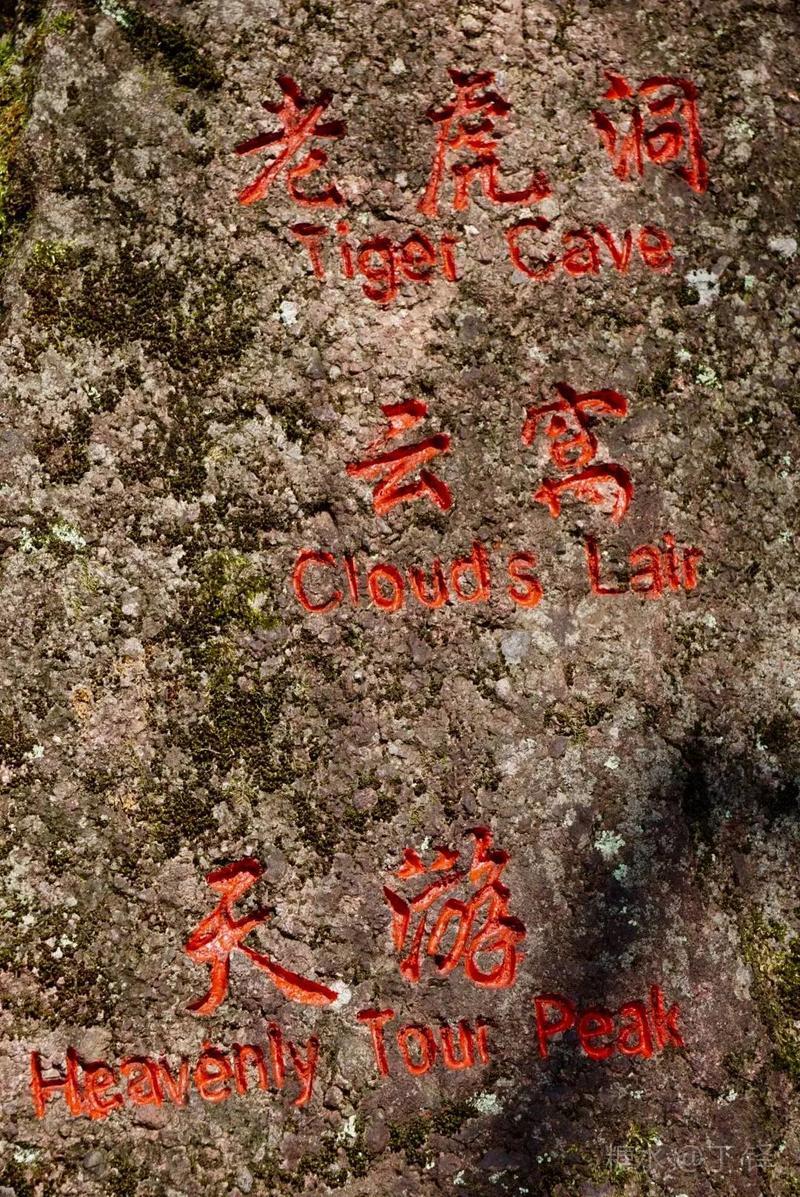 老虎洞
Tiger Cave
云窝
Cloud's Lair
天游
Heavenly Tour Peak